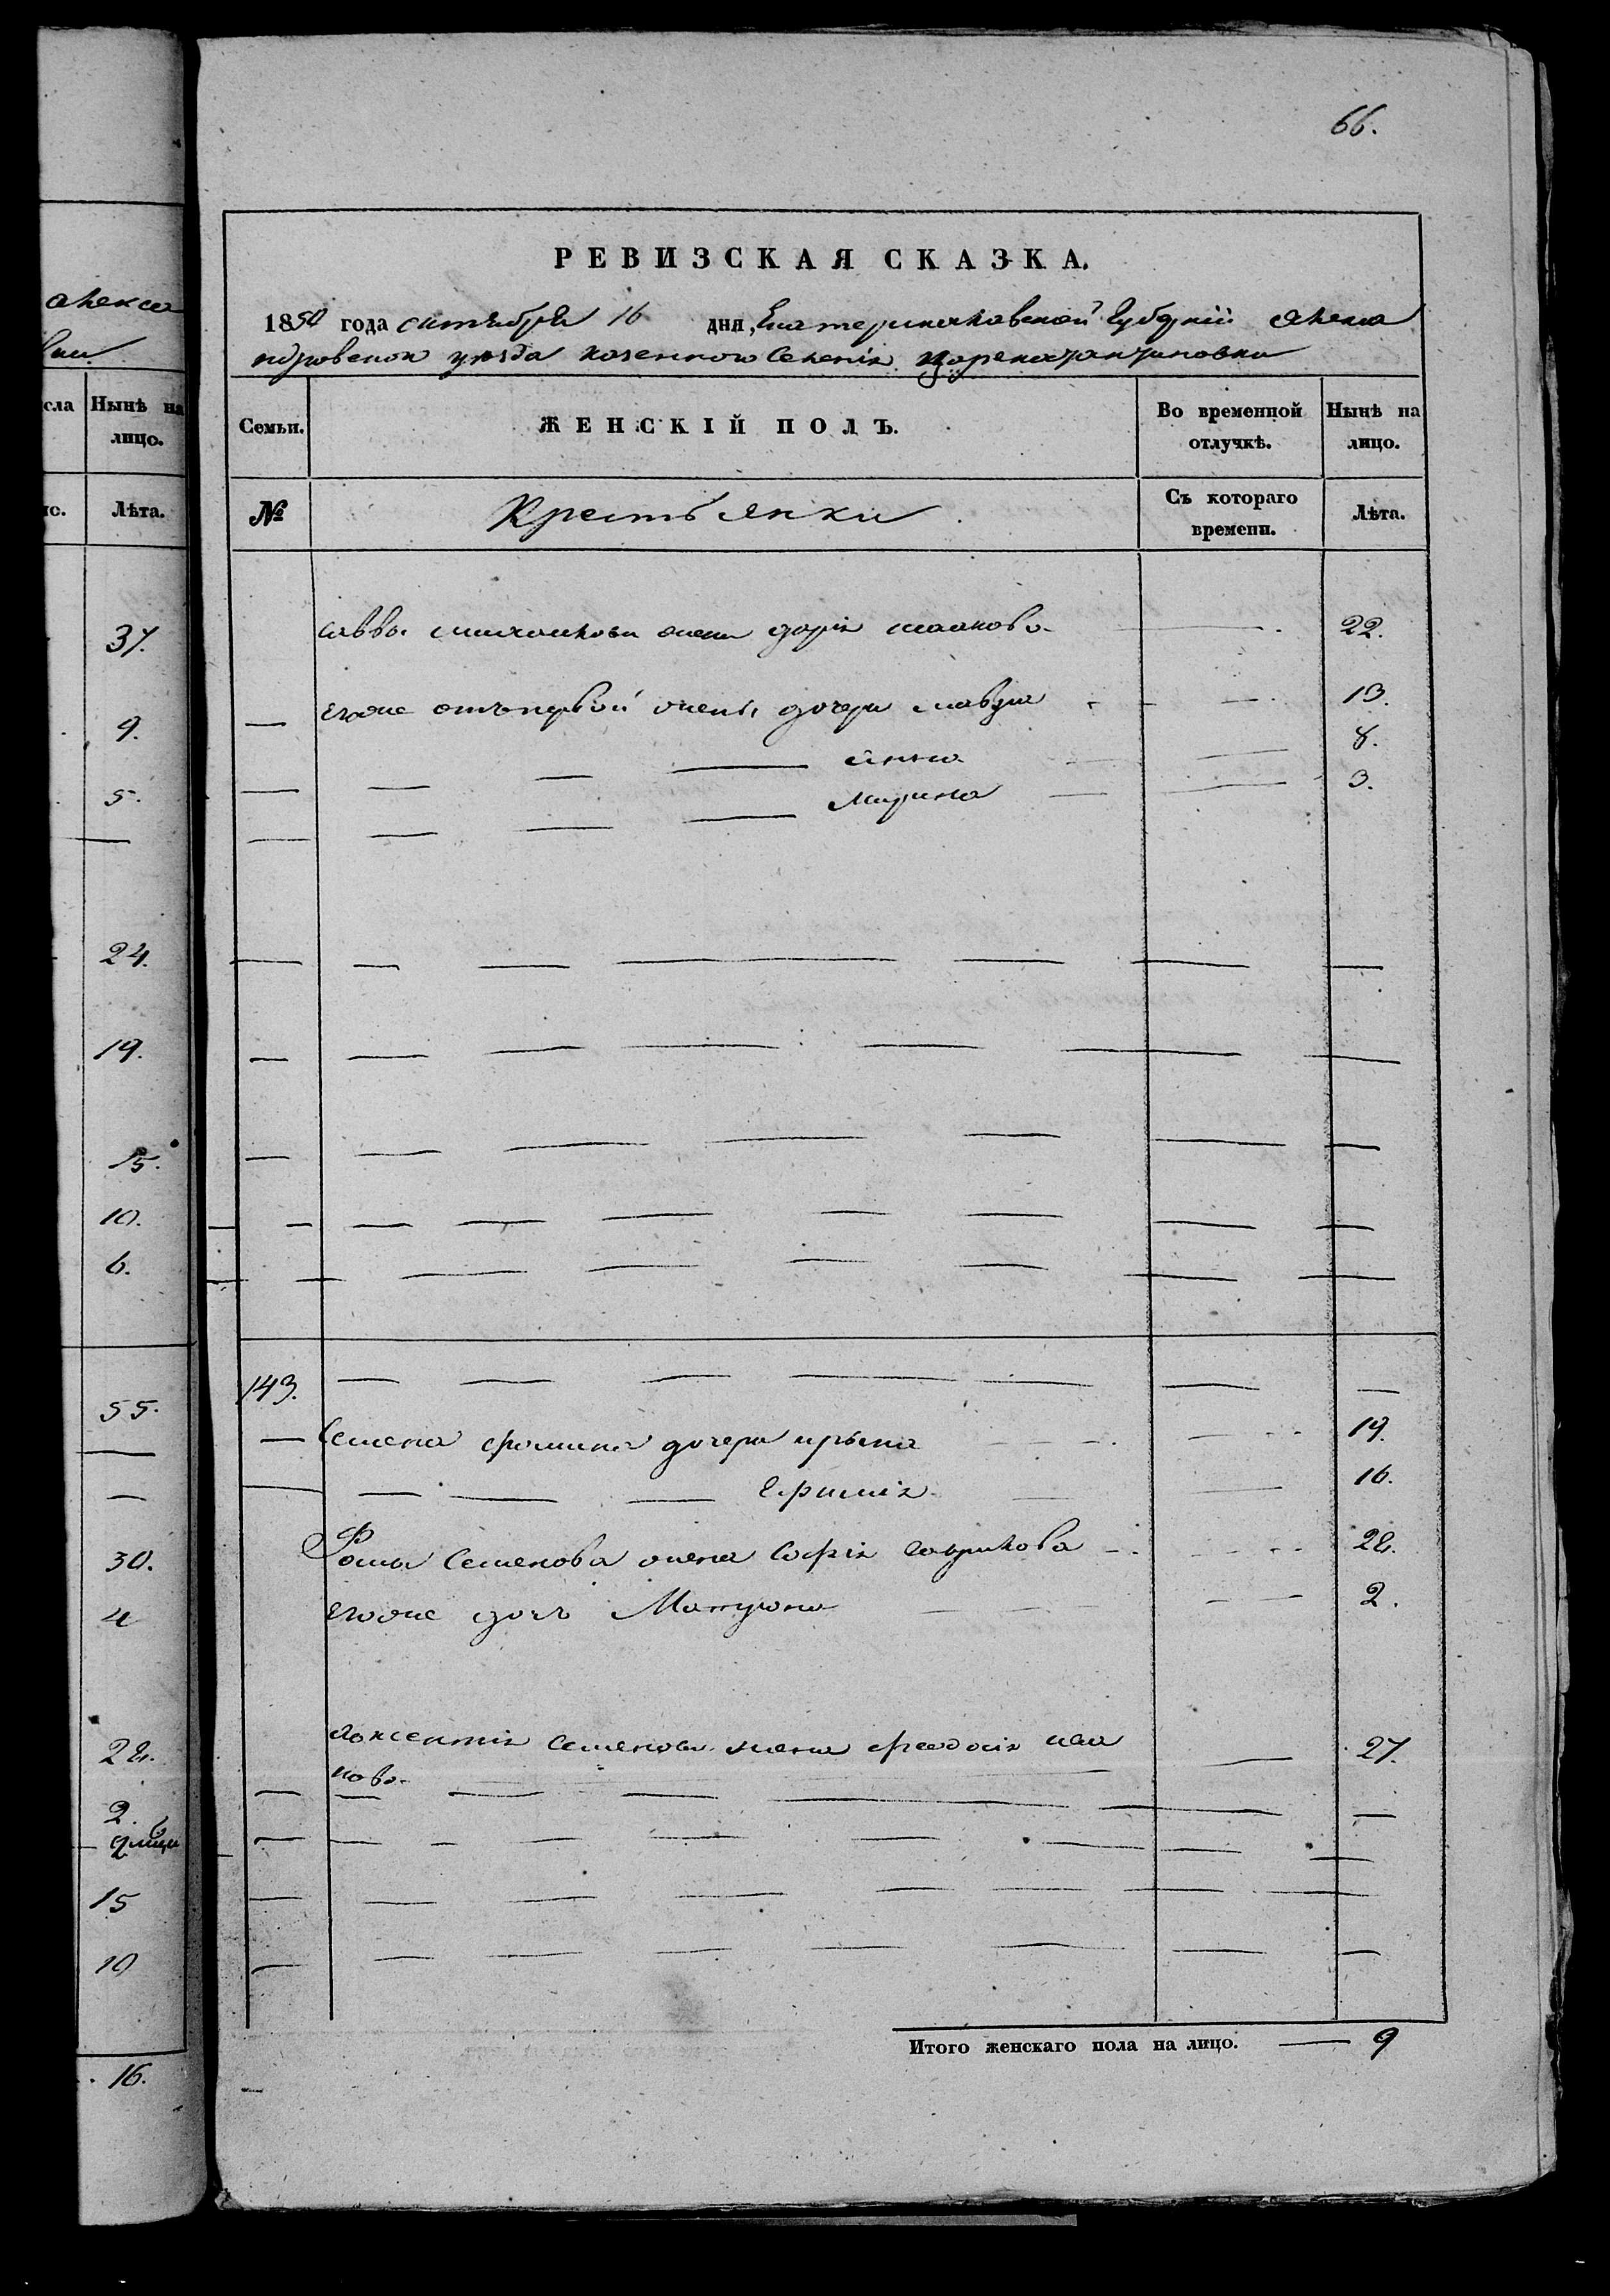 66.
РЕВИЗСКАЯ СКАЗКА.
1850 года октября 16 дня, Екатеринославской Губернiи Алекса
ндровскои уѣзда казенного Селенiя Цареконстантиновки
Семьи.
ЖЕНСКIЙ ПОЛЪ.
Во временной отлучкѣ.
Нынѣ на лицо.
№
Крестьянки
Съ котораго времени.
Лѣта.
саввы михаилова жена дарiя 22.
егоже отъ первой жены дочери мавра 13.
анна 8.
Марина 3.
143.
Семена фомина дочери ирына 19.
Ефимiя 16.
Фомы Семенова жена Софiя гаврилова 28.
егоже дочь Матрона 2.
Авксентiя Семенова жена феодосiя ива
нова 27.
Итого женскаго пола на лицо. 9
алекса
вки.
сла
Нынѣ на
лицо.
Лѣта.
37.
9.
5.
24.
19.
15.
10.
6.
55.
30.
4
28.
2.
15
10
16.